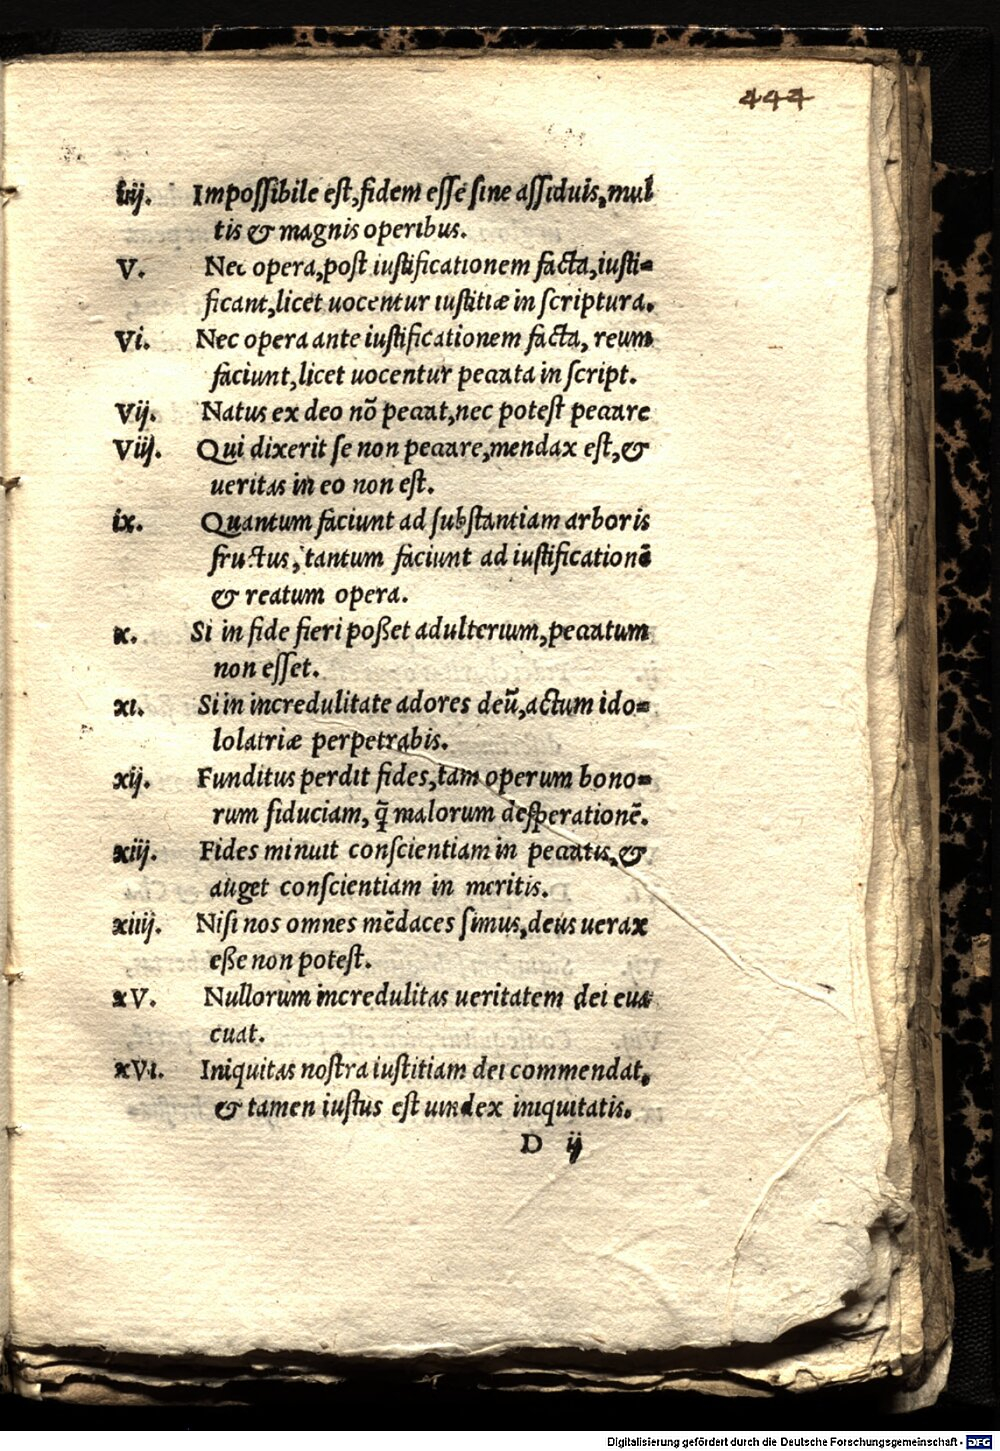 444
iiij. Impoſſibile eſt,fidem eſſe ſine aſſiduis,mul
tis & magnis operibus.
V. Nec opera,poſt iuſtificationem facta,iuſti=
ficant,licet uocentur iuſtitiæ in ſcriptura.
Vi. Nec opera ante iuſtificationem facta, reum
faciunt,licet uocentur peccata in ſcript.
Vij. Natus ex deo nō peccat,nec poteſt peccare
Viij. Qui dixerit ſe non peccare,mendax eſt,&
ueritas in eo non eſt.
ix. Quantum faciunt ad ſubſtantiam arboris
fructus, tantum faciunt ad iuſtificationē
& reatum opera.
x. Si in fide fieri poßet adulterium,peccatum
non eſſet.
xi. Si in incredulitate adores deū,actum ido=
lolatriæ perpetrabis.
xij. Funditus perdit fides,tam operum bono=
rum fiduciam, q̄ malorum deſperationē.
xiij. Fides minuit conſcientiam in peccatis,&
auget conſcientiam in meritis.
xiiij. Niſi nos omnes mēdaces ſimus,deus uerax
eße non poteſt.
xV. Nullorum incredulitas ueritatem dei eua
cuat.
xVi. Iniquitas noſtra iuſtitiam dei commendat,
& tamen iuſtus eſt uindex iniquitatis.
D ij
Digitalisierung gefördert durch die Deutsche Forschungsgemeinschaft - DFG